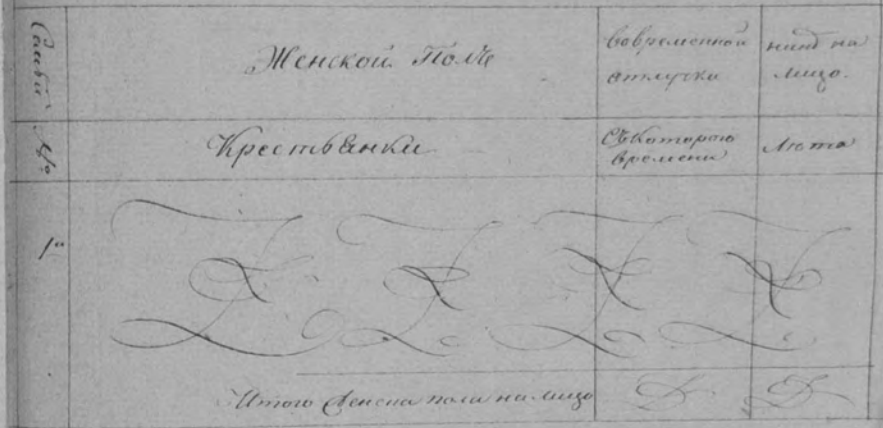 Семьи
Женской Полъ
вовременной
отлучки
нынѣ на
лицо.
№
Крестьянки
Съкоторого
времени
Лѣта
1й
Итого женска пола на лицо